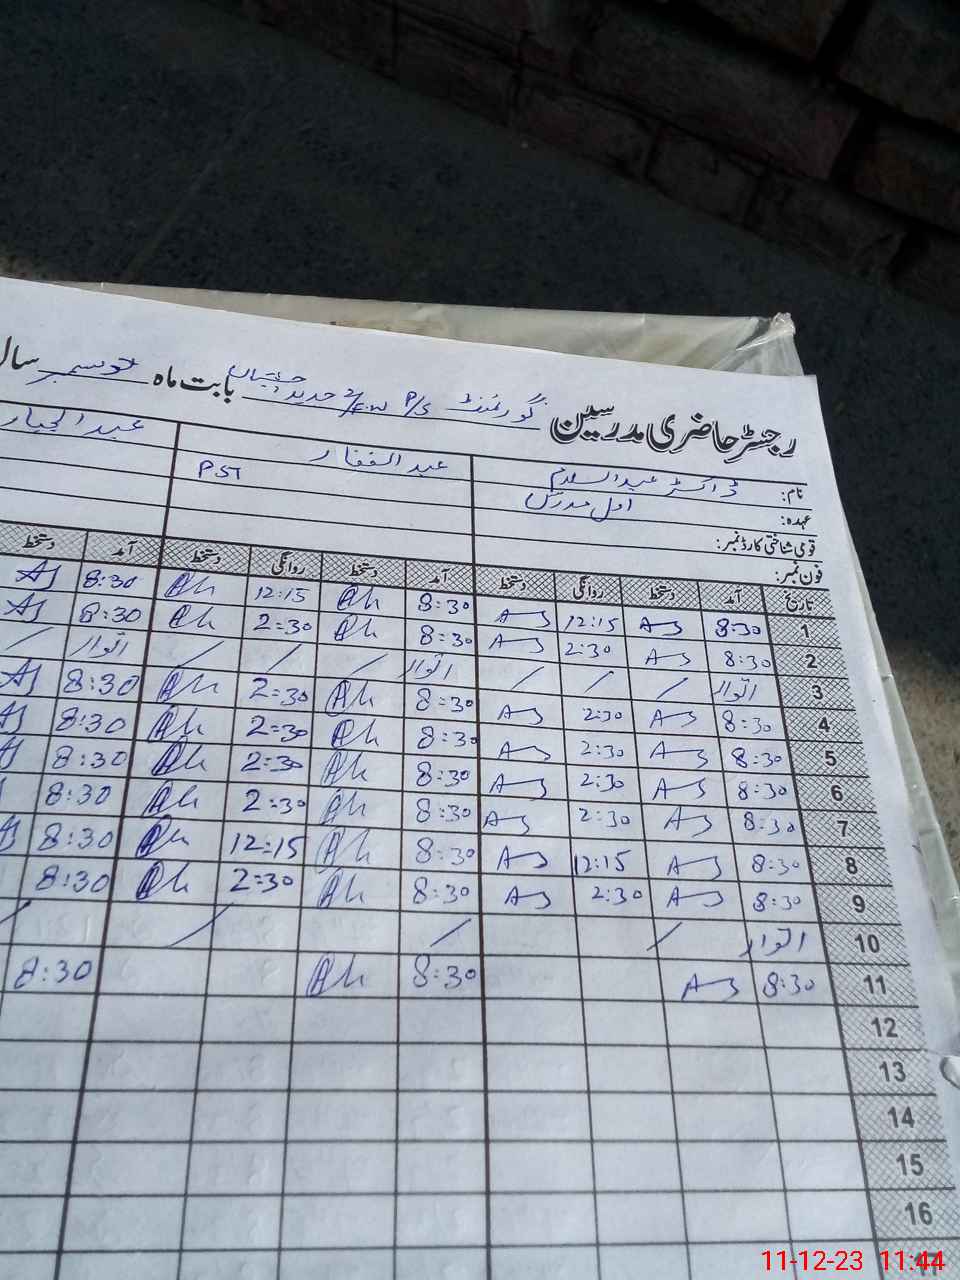 رجسٹر حاضری مدرسین گورنمنٹ P/S بابت ماہ دسمبر سال
نام: ڈاکٹر عبدالسلام عبدالغفار عبدالجبار
عہدہ: اول مدرس PST
قومی شناختی کارڈ نمبر:
فون نمبر:
تاریخ آمد دستخط روانگی دستخط آمد دستخط روانگی دستخط آمد دستخط
1 8:30 AS 12:15 AS 8:30 12:15 8:30
2 8:30 AS 2:30 AS 8:30 2:30 8:30
3 اتوار / / / اتوار / / / اتوار /
4 8:30 AS 2:30 AS 8:30 2:30 8:30
5 8:30 AS 2:30 AS 8:30 2:30 8:30
6 8:30 AS 2:30 AS 8:30 2:30 8:30
7 8:30 AS 2:30 AS 8:30 2:30 8:30
8 8:30 AS 12:15 AS 8:30 12:15 8:30
9 8:30 AS 2:30 AS 8:30 2:30 8:30
10 اتوار / / / /
11 8:30 AS 8:30 8:30
12
13
14
15
16
17
11-12-23 11:44